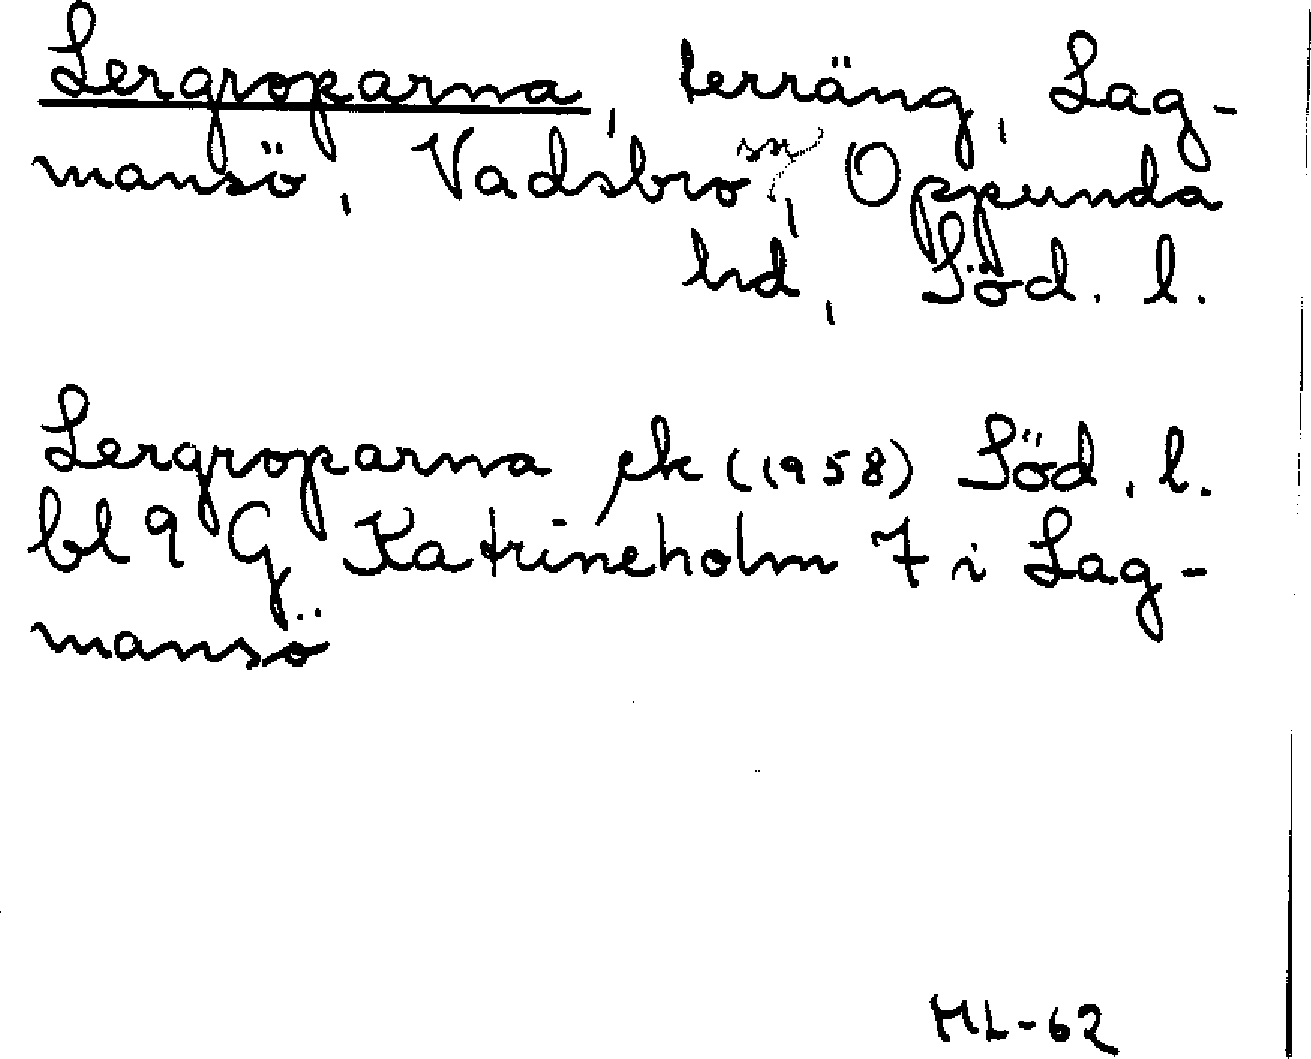 Lergroparna, terräng, Lag-
mansö, Vadsbro sn, Oppunda
hd, Söd. l.
Lergroparna ek (1958) Söd. l.
bl 9 G Katrineholm 7 i Lag-
mansö
ML-62